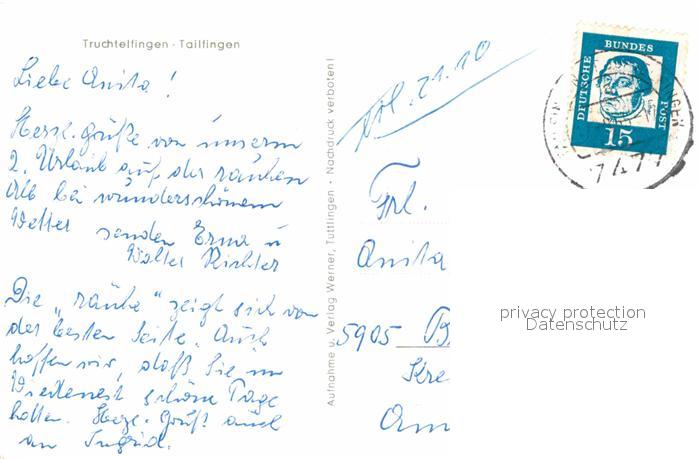 Truchtelfingen - Tailfingen
Liebe Anita!
Herzl. Grüße von unserm
2. Urlaub auf der rauhen
Alb bei wunderschönem
Wetter senden Erna u
Walter Richter
Die „rauhe" zeigt sich von
der besten Seite. Auch
hoffen wir, daß Sie im
Wiedenest schöne Tage
hatten. Herzl. Gruß auch
an Ingrid.
Aufnahme u. Verlag Werner, Tuttlingen - Nachdruck verboten!
21.10
Frl.
Anita
5905 B
Kre
Am
DEUTSCHE
BUNDES
POST
15
privacy protection
Datenschutz